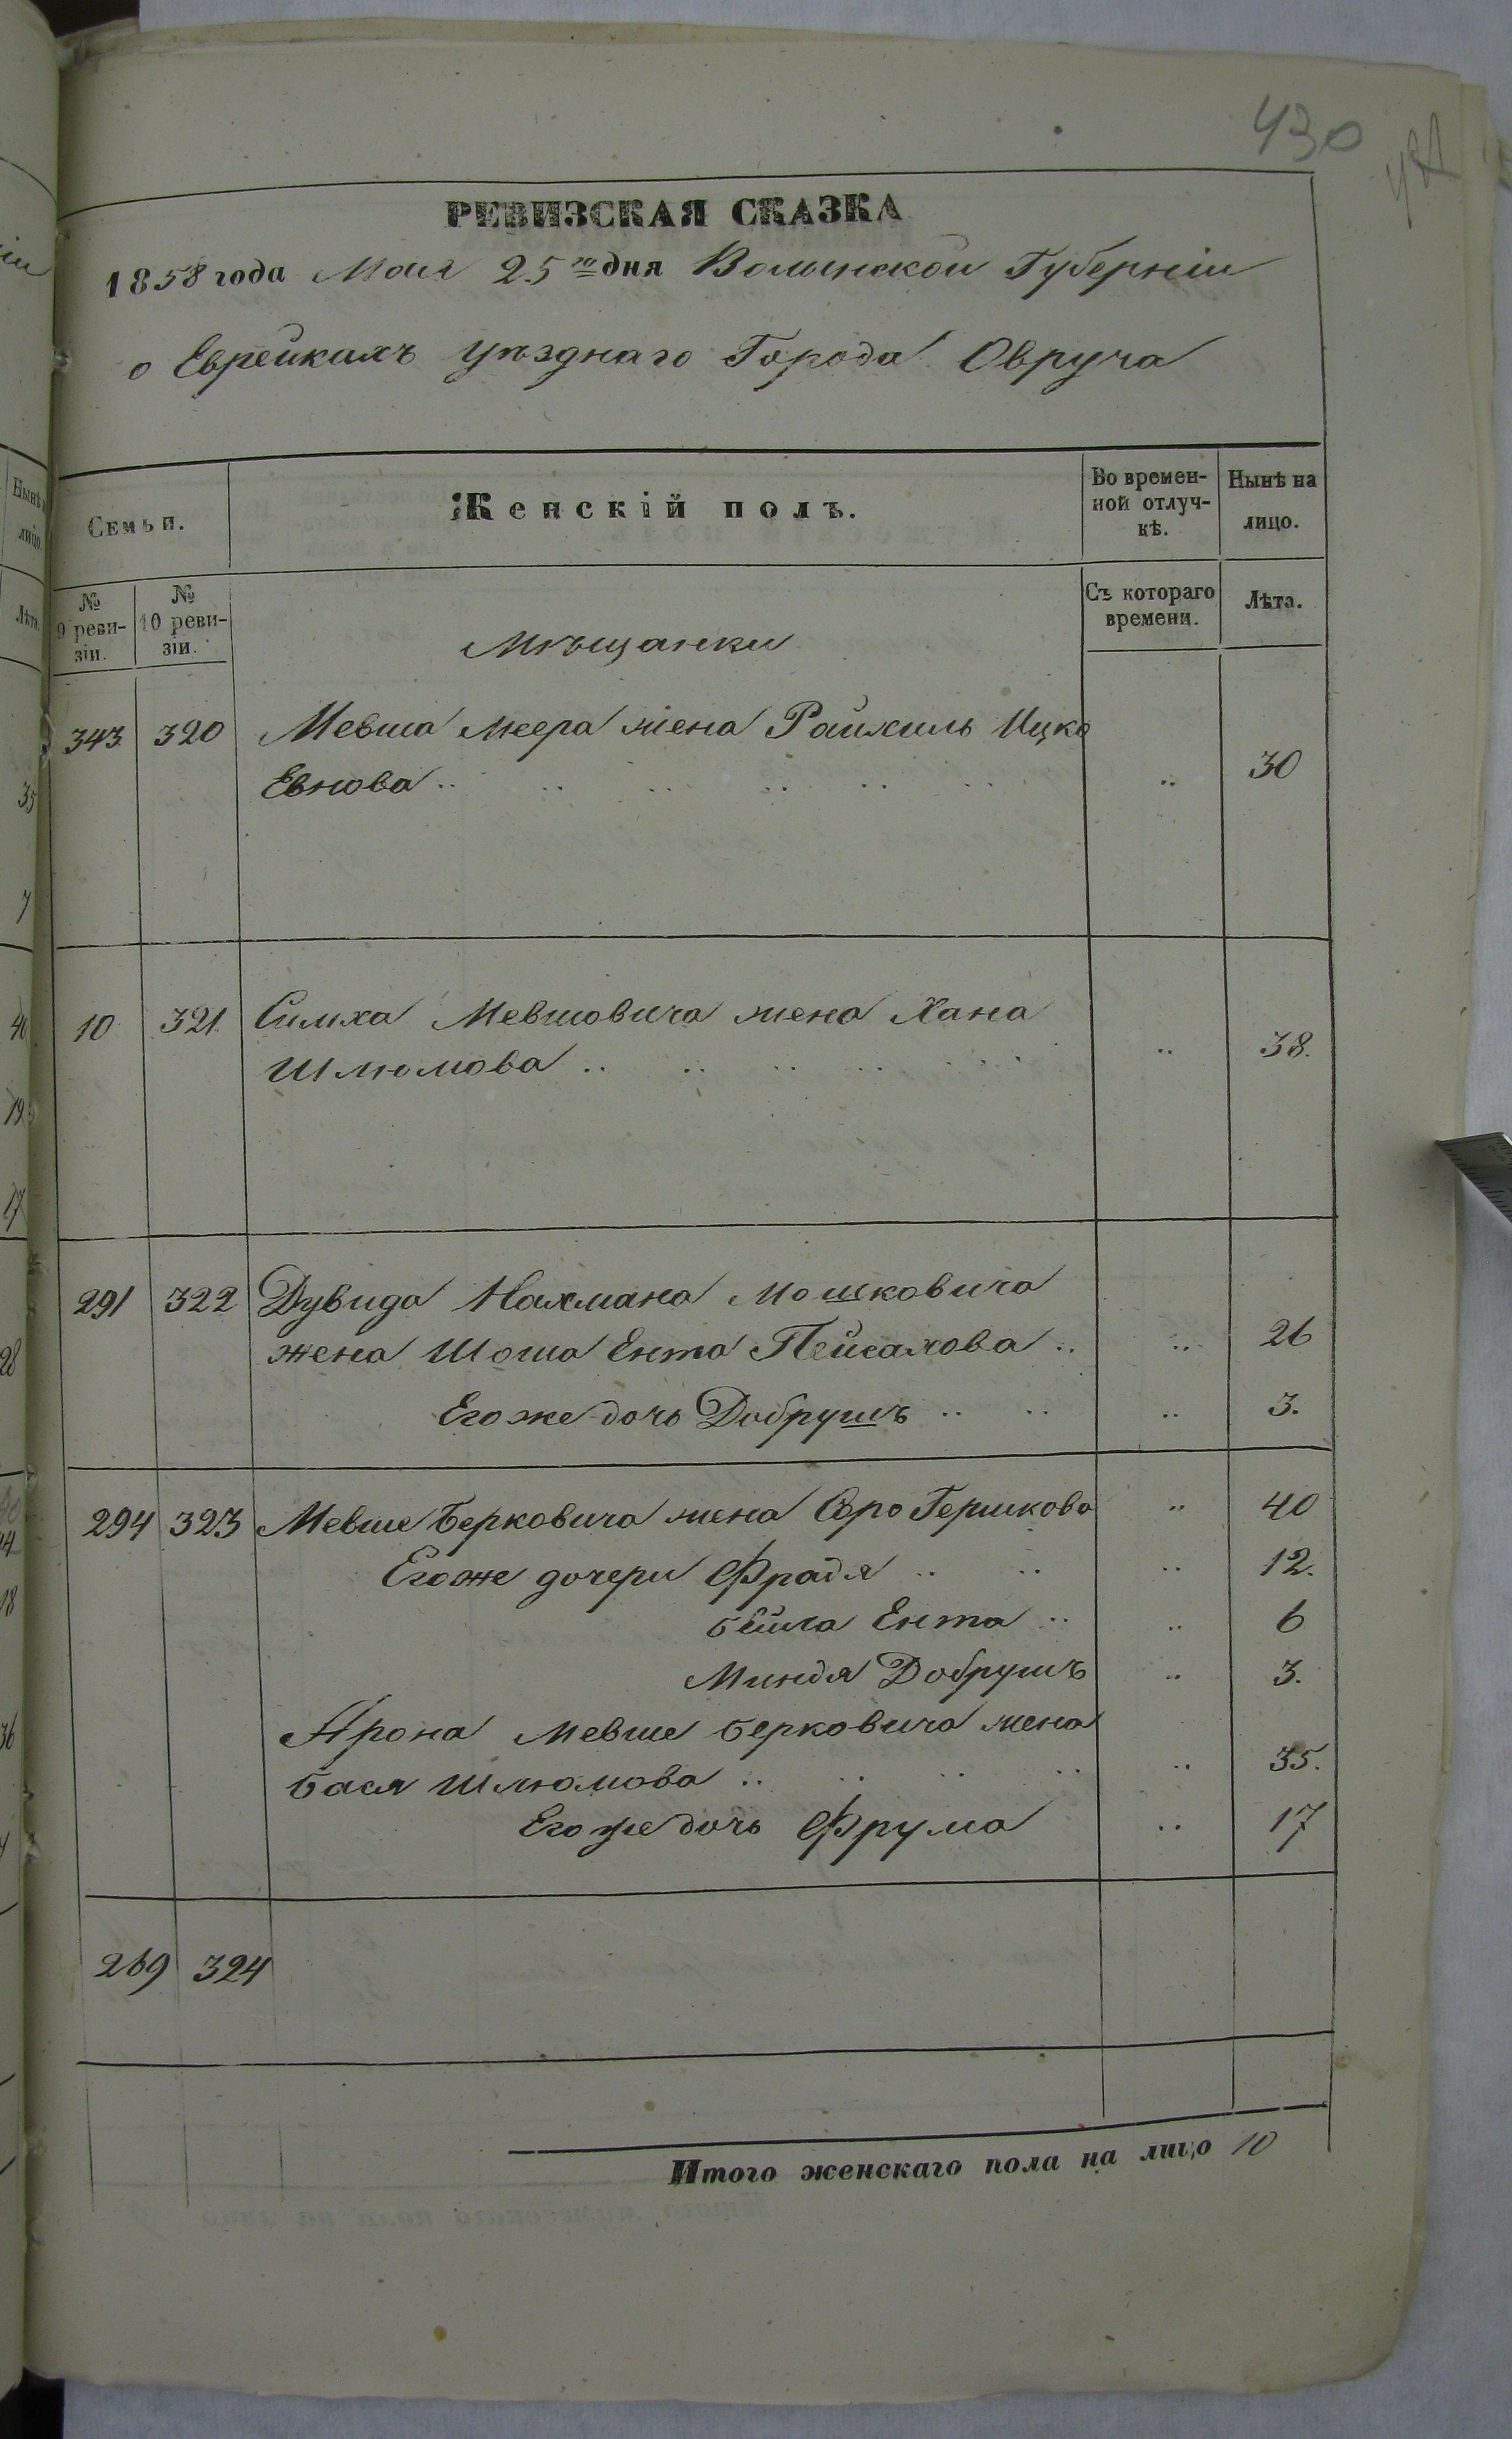 430
РЕВИЗСКАЯ СКАЗКА
1858 года Мая 25го дня Волынской Губерніи
о Еврейкахъ уѣзднаго Города Овруча
Семьи.
Женскій полъ.
Во времен-
ной отлуч-
кѣ.
Нынѣ на
лицо.
№
9 реви-
зіи.
№
10 реви-
зіи.
Съ котораго
времени.
Лѣта.
Мѣщанки
343 320 Мевша Меера жена Райхиль Ицко
Евнова .. .. .. .. .. .. .. 30
10 321. Симха Мевшовича жена Хана
Шлюмова .. .. .. .. .. .. 38.
291 322 Дувида Нахмана Мошковича
жена Шоша Ента Пейсахова .. .. 26
Егоже дочь Добрушъ .. .. .. 3.
294 323 Мевше Берковича жена Сро Гершкова .. 40
Егоже дочери Фрадя .. .. .. 12.
бейла Ента .. .. 6
Миндя Добрушъ .. 3.
Арона Мевше берковича жена
бася Шлюмова .. .. .. .. .. 35.
Егоже дочь Фрума .. 17
269 324
Итого женскаго пола на лицо 10